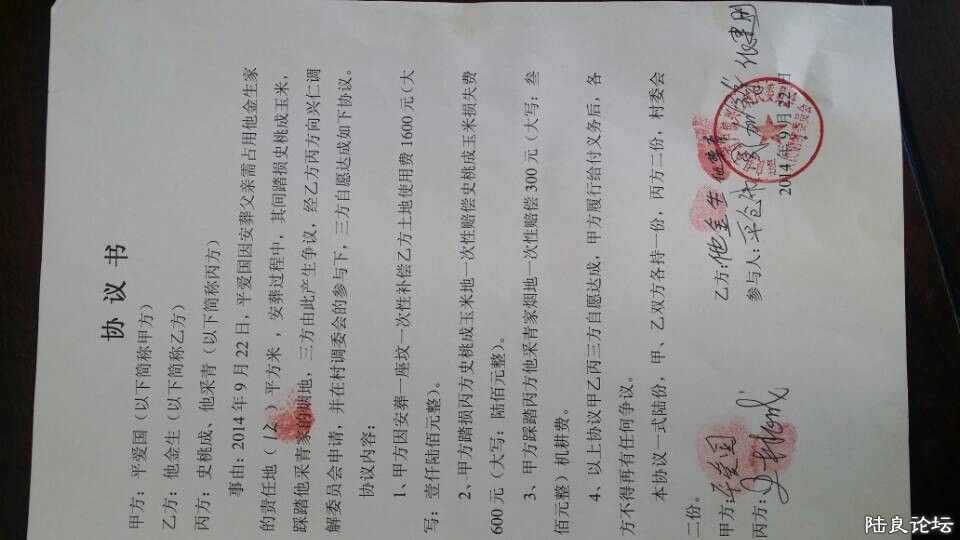 协 议 书
甲方：平爱国（以下简称甲方）
乙方：他金生（以下简称乙方）
丙方：史桃成、他采青（以下简称丙方）
事由：2014年9月22日，平爱国因安葬父亲需占用他金生家
的责任地（12）平方米，安葬过程中，其间踏损史桃成玉米，
踩踏他采青家的烟地，三方由此产生争议，经乙方丙方向兴仁调
解委员会申请，并在村调委会的参与下，三方自愿达成如下协议。
协议内容：
1、甲方因安葬一座坟一次性补偿乙方土地使用费1600元（大
写：壹仟陆佰元整）。
2、甲方踏损丙方史桃成玉米地一次性赔偿史桃成玉米损失费
600元（大写：陆佰元整）。
3、甲方踩踏丙方他采青家烟地一次性赔偿300元（大写：叁
佰元整）机耕费。
4、以上协议甲乙丙三方自愿达成，甲方履行给付义务后，各
方不得再有任何争议。
本协议一式陆份，甲、乙双方各持一份，丙方二份，村委会
二份。
甲方：平爱国
乙方：他金生 他采青
丙方：史桃成
参与人：
2014年9月22日
陆良论坛